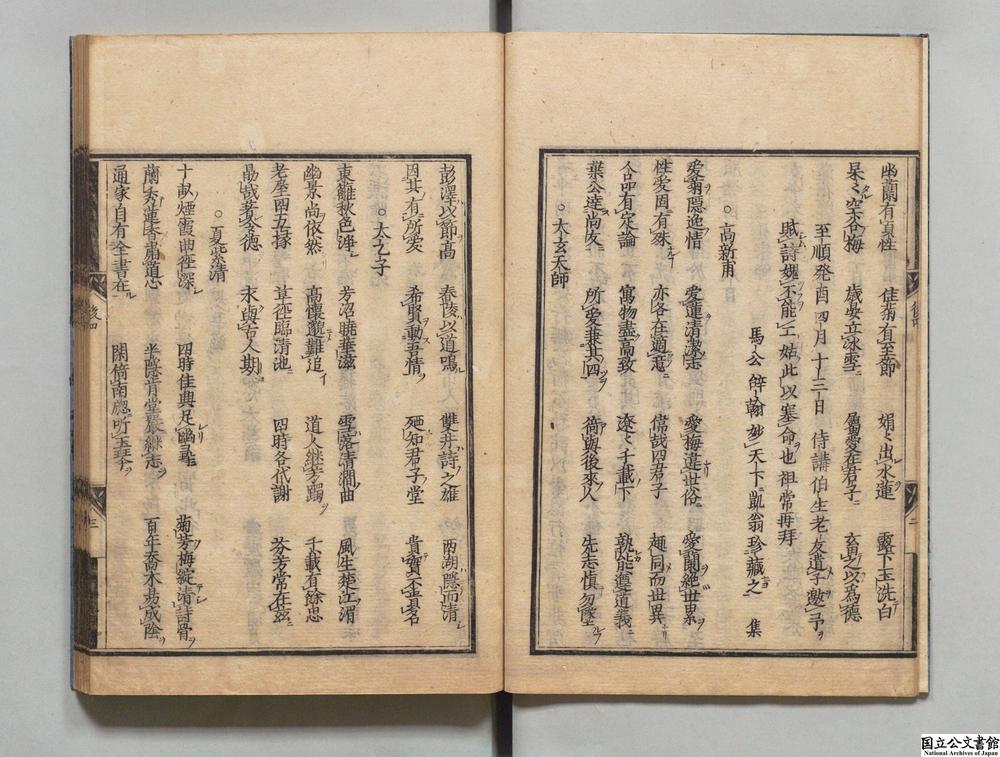 幽蘭有真性 佳菊有至節 娟〻出水蓮 露下玉洗白
杲〻空谷梅 歳晏立冰雪 屬愛在君子 玄有之以為德
至順癸酉四月十三日侍講伯生老友遣子邀予
賦詩媿不能工姑此以塞命也祖常再拜
馬公辭翰妙天下凱翁珍藏之 集
○高新甫
愛菊隱逸情 愛蓮清潔志 愛梅遠世俗 愛蘭絶世累
性愛固有殊 亦各在適意 儒哉四君子 趣同而世異
人品有定論 寓物盡高致 遼〻千載下 孰能遵道義
葉公達尚友 所愛兼其四 猗與後來人 先志慎勿墜
○太玄天師
彭澤以節高 舂陵以道鳴 雙井詩之雄 西湖隱而清
因其有所愛 希賢動吾情 廼知君子堂 貴實不貴名
○太之子
東籬秋色浄 芳沼曉華滋 雪落清澗曲 風生楚江湄
幽景尚依然 高懷邈難追 道人繼芳躅 千載有餘思
老屋四五椽 草徑臨清池 四時各代謝 芬芳常在茲
勗哉耆令德 永與古人期
○夏紫清
十畝煙霞曲徑深 四時佳興足幽尋 菊芳梅綻清詩骨
蘭秀蓮香肅道心 半隱肯堂嚴繼志 百年喬木易成陰
通家自有全書在 閑倚南窓听玉琴
後四
二
後四
三
国立公文書館
National Archives of Japan